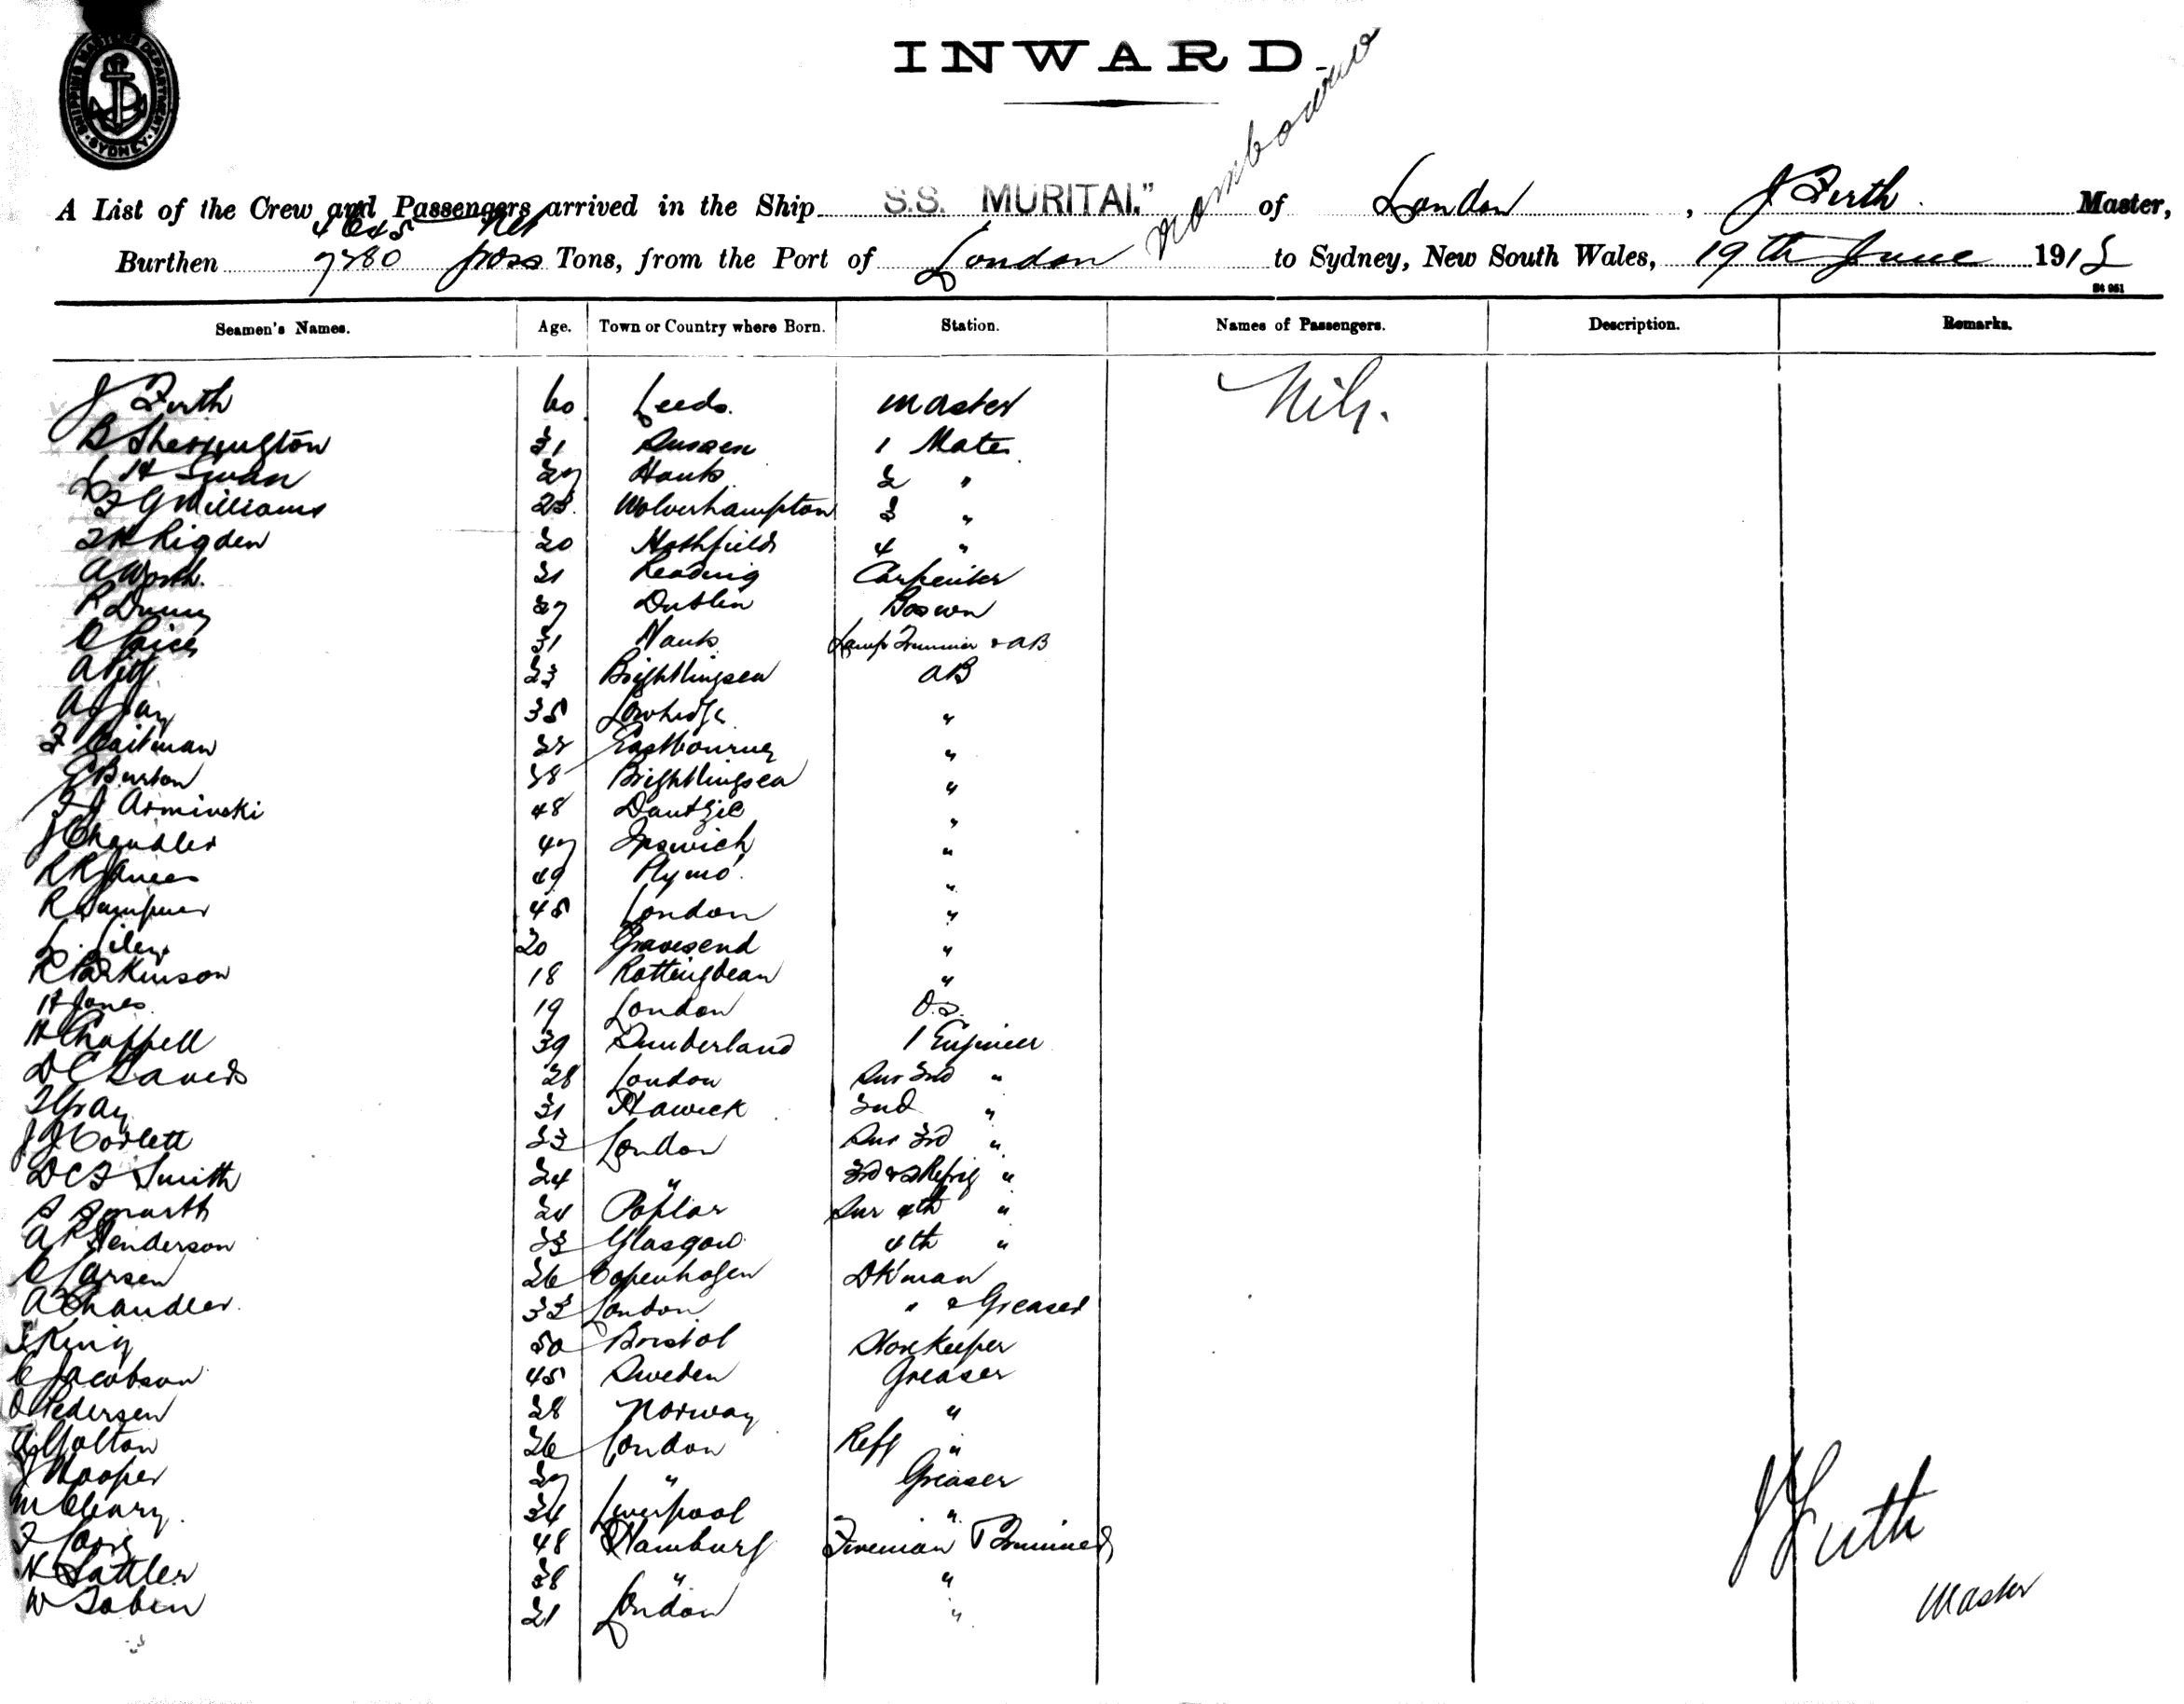 SHIPPING MASTERS DEPARTMENT. SYDNEY
INWARD.
A List of the Crew and Passengers arrived in the Ship S.S. MURITAI." of London, J Firth Master,
4645 Net
Burthen 7280 gross Tons, from the Port of London to Sydney, New South Wales, 19th June 1912
Seamen's Names. Age. Town or Country where Born. Station. Names of Passengers. Description. Remarks.
J Firth 60 Leeds. Master Nil.
B Sherrington 31 Sussex 1 Mate
Swan 27 Hants 2 "
G Williams 23. Wolverhampton 3 "
Rigden 20 Hothfield 4 "
A Worth. 31 Reading Carpenter
R Dunn 37 Dublin Boswn
C 31 Hants Lamp Trimmer & AB
A 23 Brightlingsea AB
A Jay 35 Rowhedge "
F Eastbourne "
G Burton 38 Brightlingsea "
J Arminski 48 Dantzic "
J Chandler 47 Ipswich "
R 49 Plymo. "
R 45 London "
20 Gravesend "
R Parkinson 18 Rottingdean "
H Jones 19 London O.S.
H Chappell 39 Sunderland 1 Engineer
D C 28 London Snr 2nd "
Gray 31 Hawick 2nd "
J J Corlett 33 London Snr 3rd "
D C F Smith 24 " 3rd & Refrig "
24 Poplar Snr 4th "
A P Henderson 23 Glasgow 4th "
C Larsen 26 Copenhagen DKman
A Chandler. 33 London " & Greaser
King 50 Bristol Storekeeper
C Jacobson 45 Sweden Greaser
O Pedersen 28 Norway "
A Holton 26 London Refg "
J Hooper 27 " Greaser
M Cleary. 34 Liverpool "
F 48 Hamburg Fireman Trimmer
N Sattler 28 " "
W Tobin 21 London "
J Firth
Master